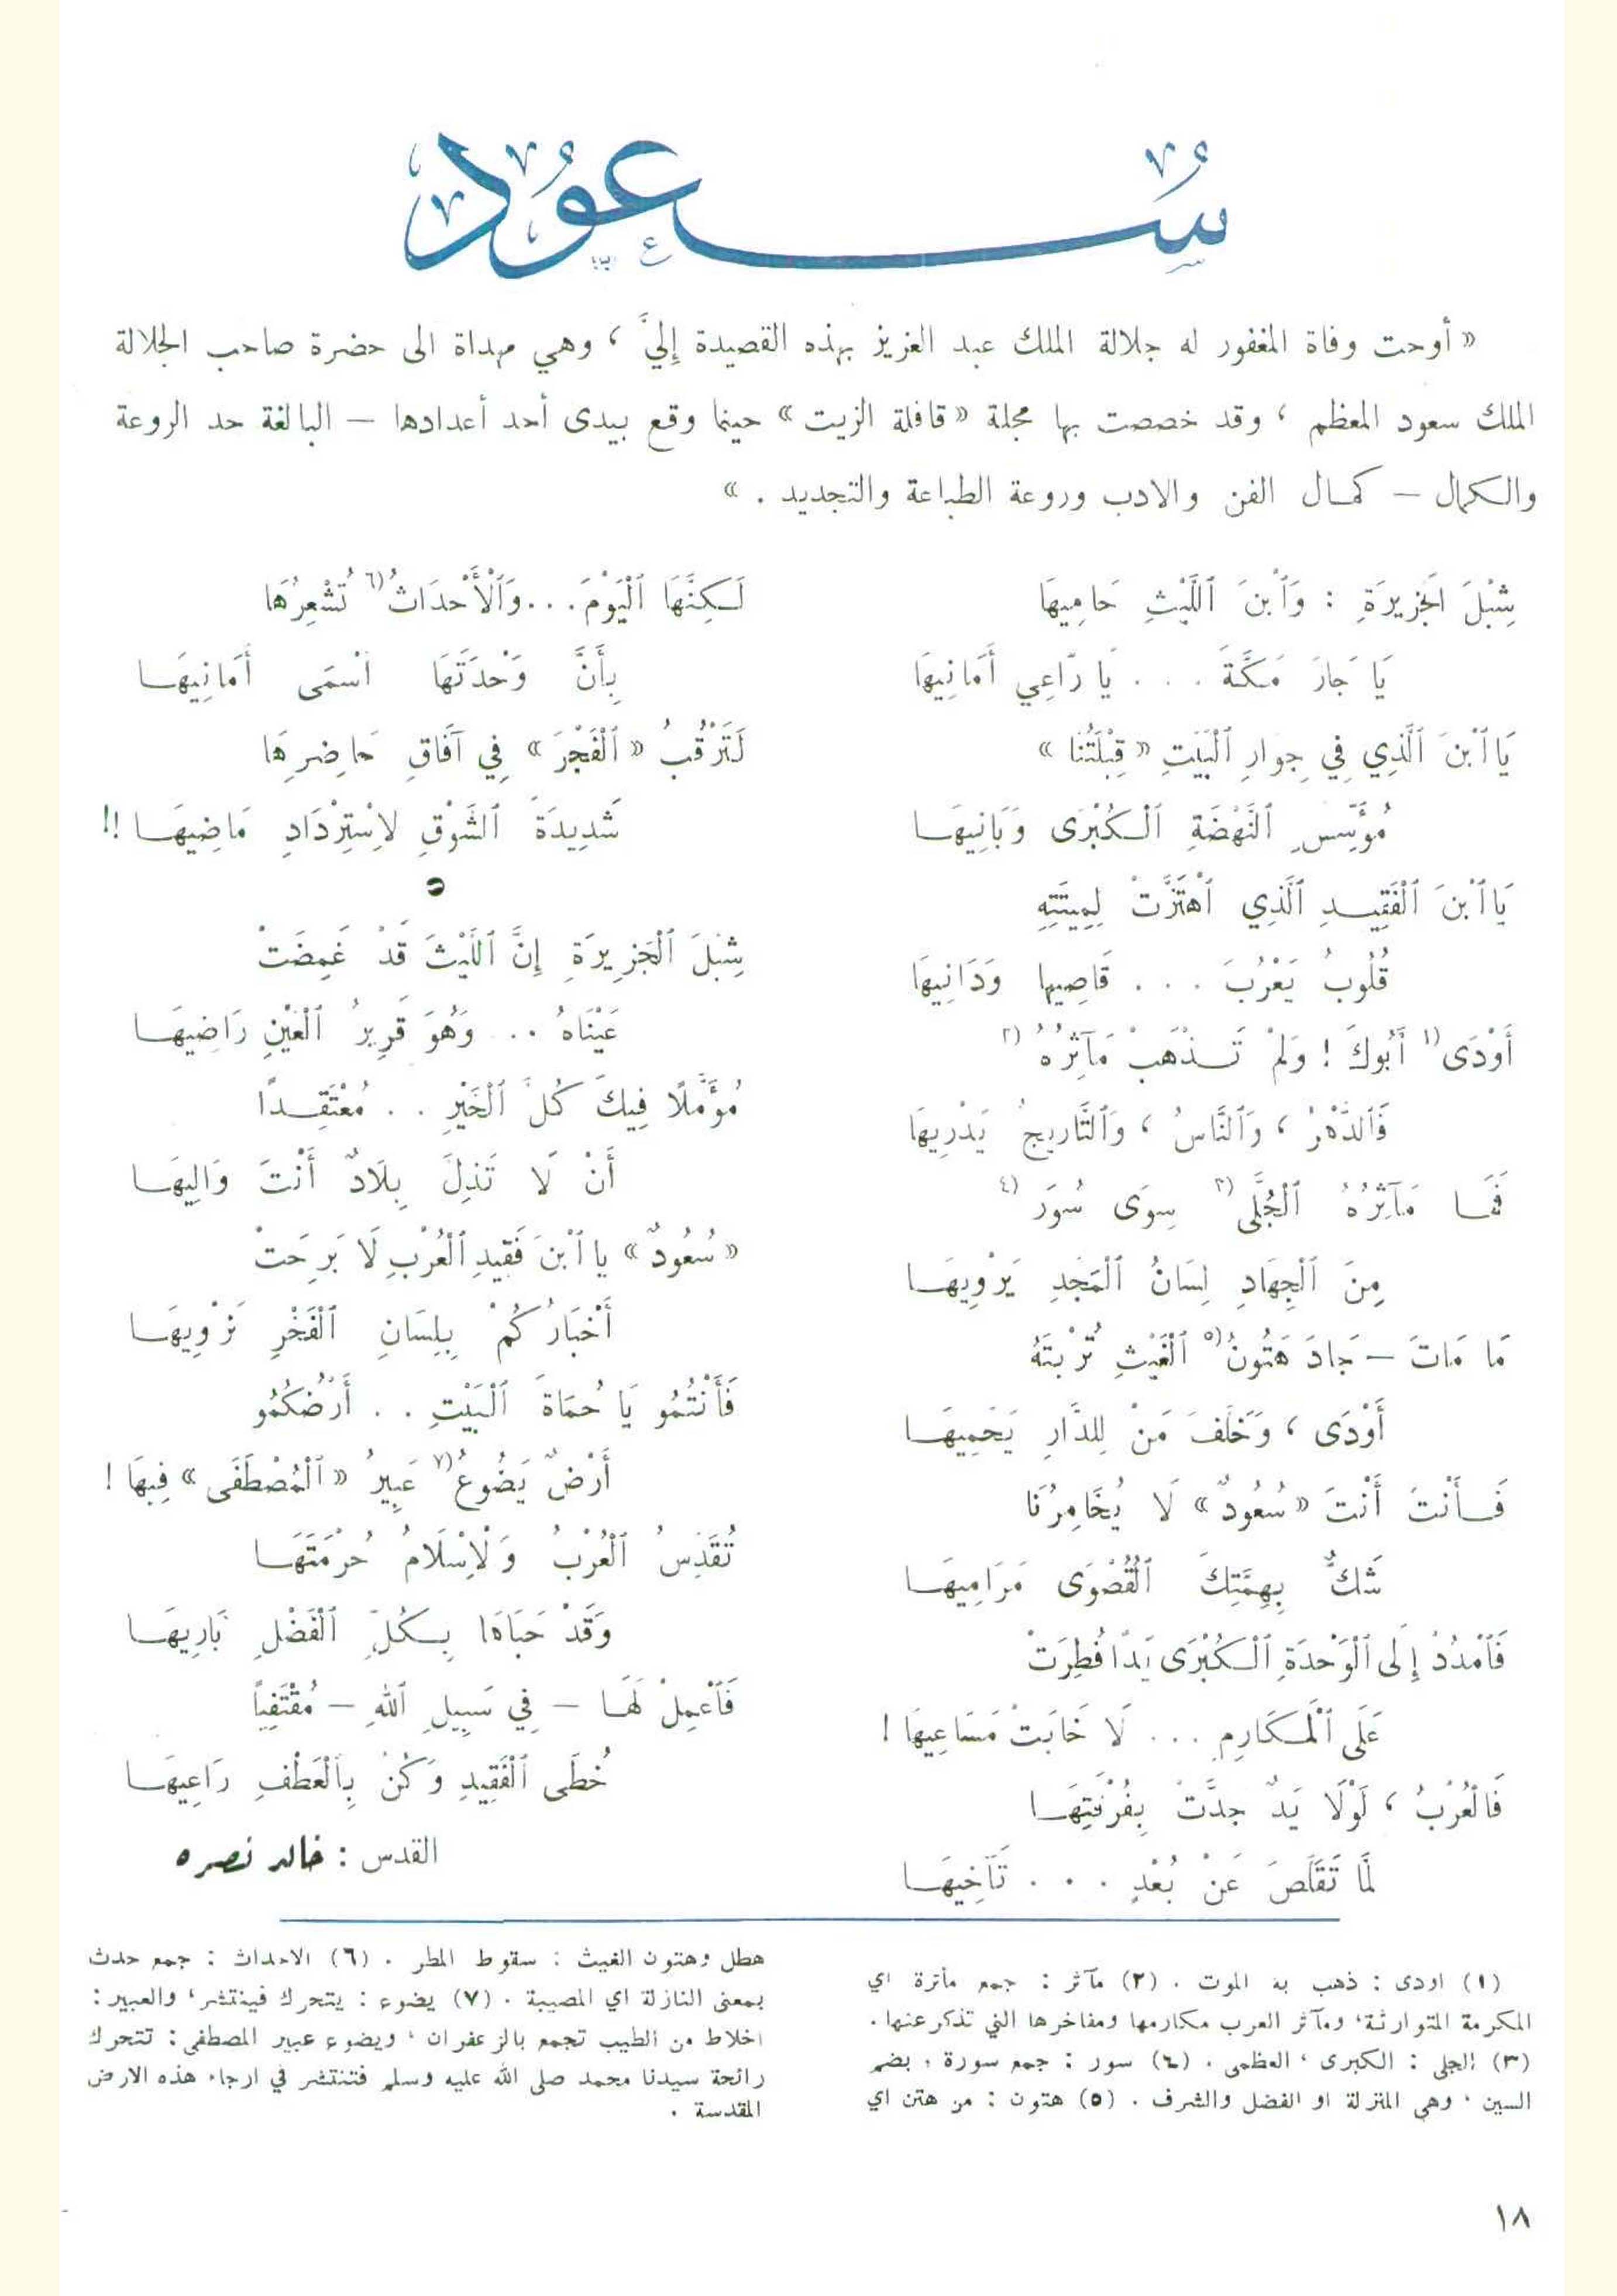 سُعُود
« أوحت وفاة المغفور له جلالة الملك عبد العزيز بهذه القصيدة إليَّ ، وهي مهداة الى حضرة صاحب الجلالة
الملك سعود المعظم ، وقد خصصت بها مجلة « قافلة الزيت » حينما وقع بيدى أحد أعدادها – البالغة حد الروعة
والكمال – كمال الفن والادب وروعة الطباعة والتجديد . »
شِبْلَ الْجَزِيرَةِ : وَٱبْنَ ٱللَّيْثِ حَامِيهَا
يَا جَارَ مَكَّةَ . . . يَا رَاعِي أَمَانِيهَا
يَا ٱبْنَ ٱلَّذِي فِي جِوَارِ ٱلْبَيْتِ « قِبْلَتُنَا »
مُؤَسِّسِ ٱلنَّهْضَةِ ٱلْكُبْرَى وَبَانِيهَا
يَا ٱبْنَ ٱلْفَقِيدِ ٱلَّذِي ٱهْتَزَّتْ لِمِيتَتِهِ
قُلُوبُ يَعْرُبَ . . . قَاصِيهَا وَدَانِيهَا
أَوْدَى (١) أَبُوكَ ! وَلَمْ تَذْهَبْ مَآثِرُهُ (٢)
فَٱلدَّهْرُ ، وَٱلنَّاسُ ، وَٱلتَّارِيخُ يَدْرِيهَا
فَمَا مَآثِرُهُ ٱلْجُلَّى (٣) سِوَى سُوَرٍ (٤)
مِنَ ٱلْجِهَادِ لِسَانُ ٱلْمَجْدِ يَرْوِيهَا
مَا مَاتَ – جَادَ هَتُونُ (٥) ٱلْغَيْثِ تُرْبَتَهُ
أَوْدَى ، وَخَلَّفَ مَنْ لِلدَّارِ يَحْمِيهَا
فَأَنْتَ أَنْتَ « سُعُودٌ » لَا يُخَامِرُنَا
شَكٌّ بِهِمَّتِكَ ٱلْقُصْوَى مَرَامِيهَا
فَٱمْدُدْ إِلَى ٱلْوَحْدَةِ ٱلْكُبْرَى يَدًا فُطِرَتْ
عَلَى ٱلْمَكَارِمِ ... لَا خَابَتْ مَسَاعِيهَا !
فَالْعُرْبُ ، لَوْلَا يَدٌ جدَّتْ بِفُرْقَتِهَا
لَمَا تَقَلَّصَ عَنْ بُعْدٍ . . . تَآخِيهَا
لَكِنَّهَا ٱلْيَوْمَ ... وَٱلْأَحْدَاثُ (٦) تُشْعِرُهَا
بِأَنَّ وَحْدَتَهَا أَسْمَى أَمَانِيهَا
لَتَرْقُبُ « ٱلْفَجْرَ » فِي آفَاقِ حَاضِرِهَا
شَدِيدَةَ ٱلشَّوْقِ لِاسْتِرْدَادِ مَاضِيهَا !!
شِبْلَ ٱلْجَزِيرَةِ إِنَّ ٱللَّيْثَ قَدْ غَمِضَتْ
عَيْنَاهُ . . . وَهُوَ قَرِيرُ ٱلْعَيْنِ رَاضِيهَا
مُؤَمِّلًا فِيكَ كُلَّ ٱلْخَيْرِ . . مُعْتَقِدًا
أَنْ لَا تَذِلَّ بِلَادٌ أَنْتَ وَالِيهَا
« سُعُودٌ » يا ٱبْنَ فَقِيدِ ٱلْعُرْبِ لَا بَرِحَتْ
أَخْبَارُكُمْ بِلِسَانِ ٱلْفَخْرِ نَرْوِيهَا
فَأَنْتُمُو يَا حُمَاةَ ٱلْبَيْتِ . . أَرْضُكُمُو
أَرْضٌ يَضُوعُ (٧) عَبِيرُ « ٱلْمُصْطَفَى » فِيهَا !
تُقَدِّسُ ٱلْعُرْبُ وَٱلْإِسْلَامُ حُرْمَتَهَا
وَقَدْ حَبَاهَا بِكُلِّ ٱلْفَضْلِ بَارِيهَا
فَٱعْمِلْ لَهَا – فِي سَبِيلِ ٱللهِ – مُقْتَفِيًا
خُطَى ٱلْفَقِيدِ وَكُنْ بِٱلْعَطْفِ رَاعِيهَا
القدس : خالد نصره
(١) اودى : ذهب به الموت . (٢) مآثر : جمع مأثرة اي
المكرمة المتوارثة، ومآثر العرب مكارمها ومفاخرها التي تذكر عنها .
(٣) الجلى : الكبرى ، العظمى . (٤) سور : جمع سورة ، بضم
السين ، وهي المنزلة او الفضل والشرف . (٥) هتون : من هتن اي
هطل وهتون الغيث : سقوط المطر . (٦) الاحداث : جمع حدث
بمعنى النازلة اي المصيبة . (٧) يضوع : يتحرك فينتشر، والعبير :
اخلاط من الطيب تجمع بالزعفران ، ويضوع عبير المصطفى : تتحرك
رائحة سيدنا محمد صلى الله عليه وسلم فتنتشر في ارجاء هذه الارض
المقدسة .
١٨